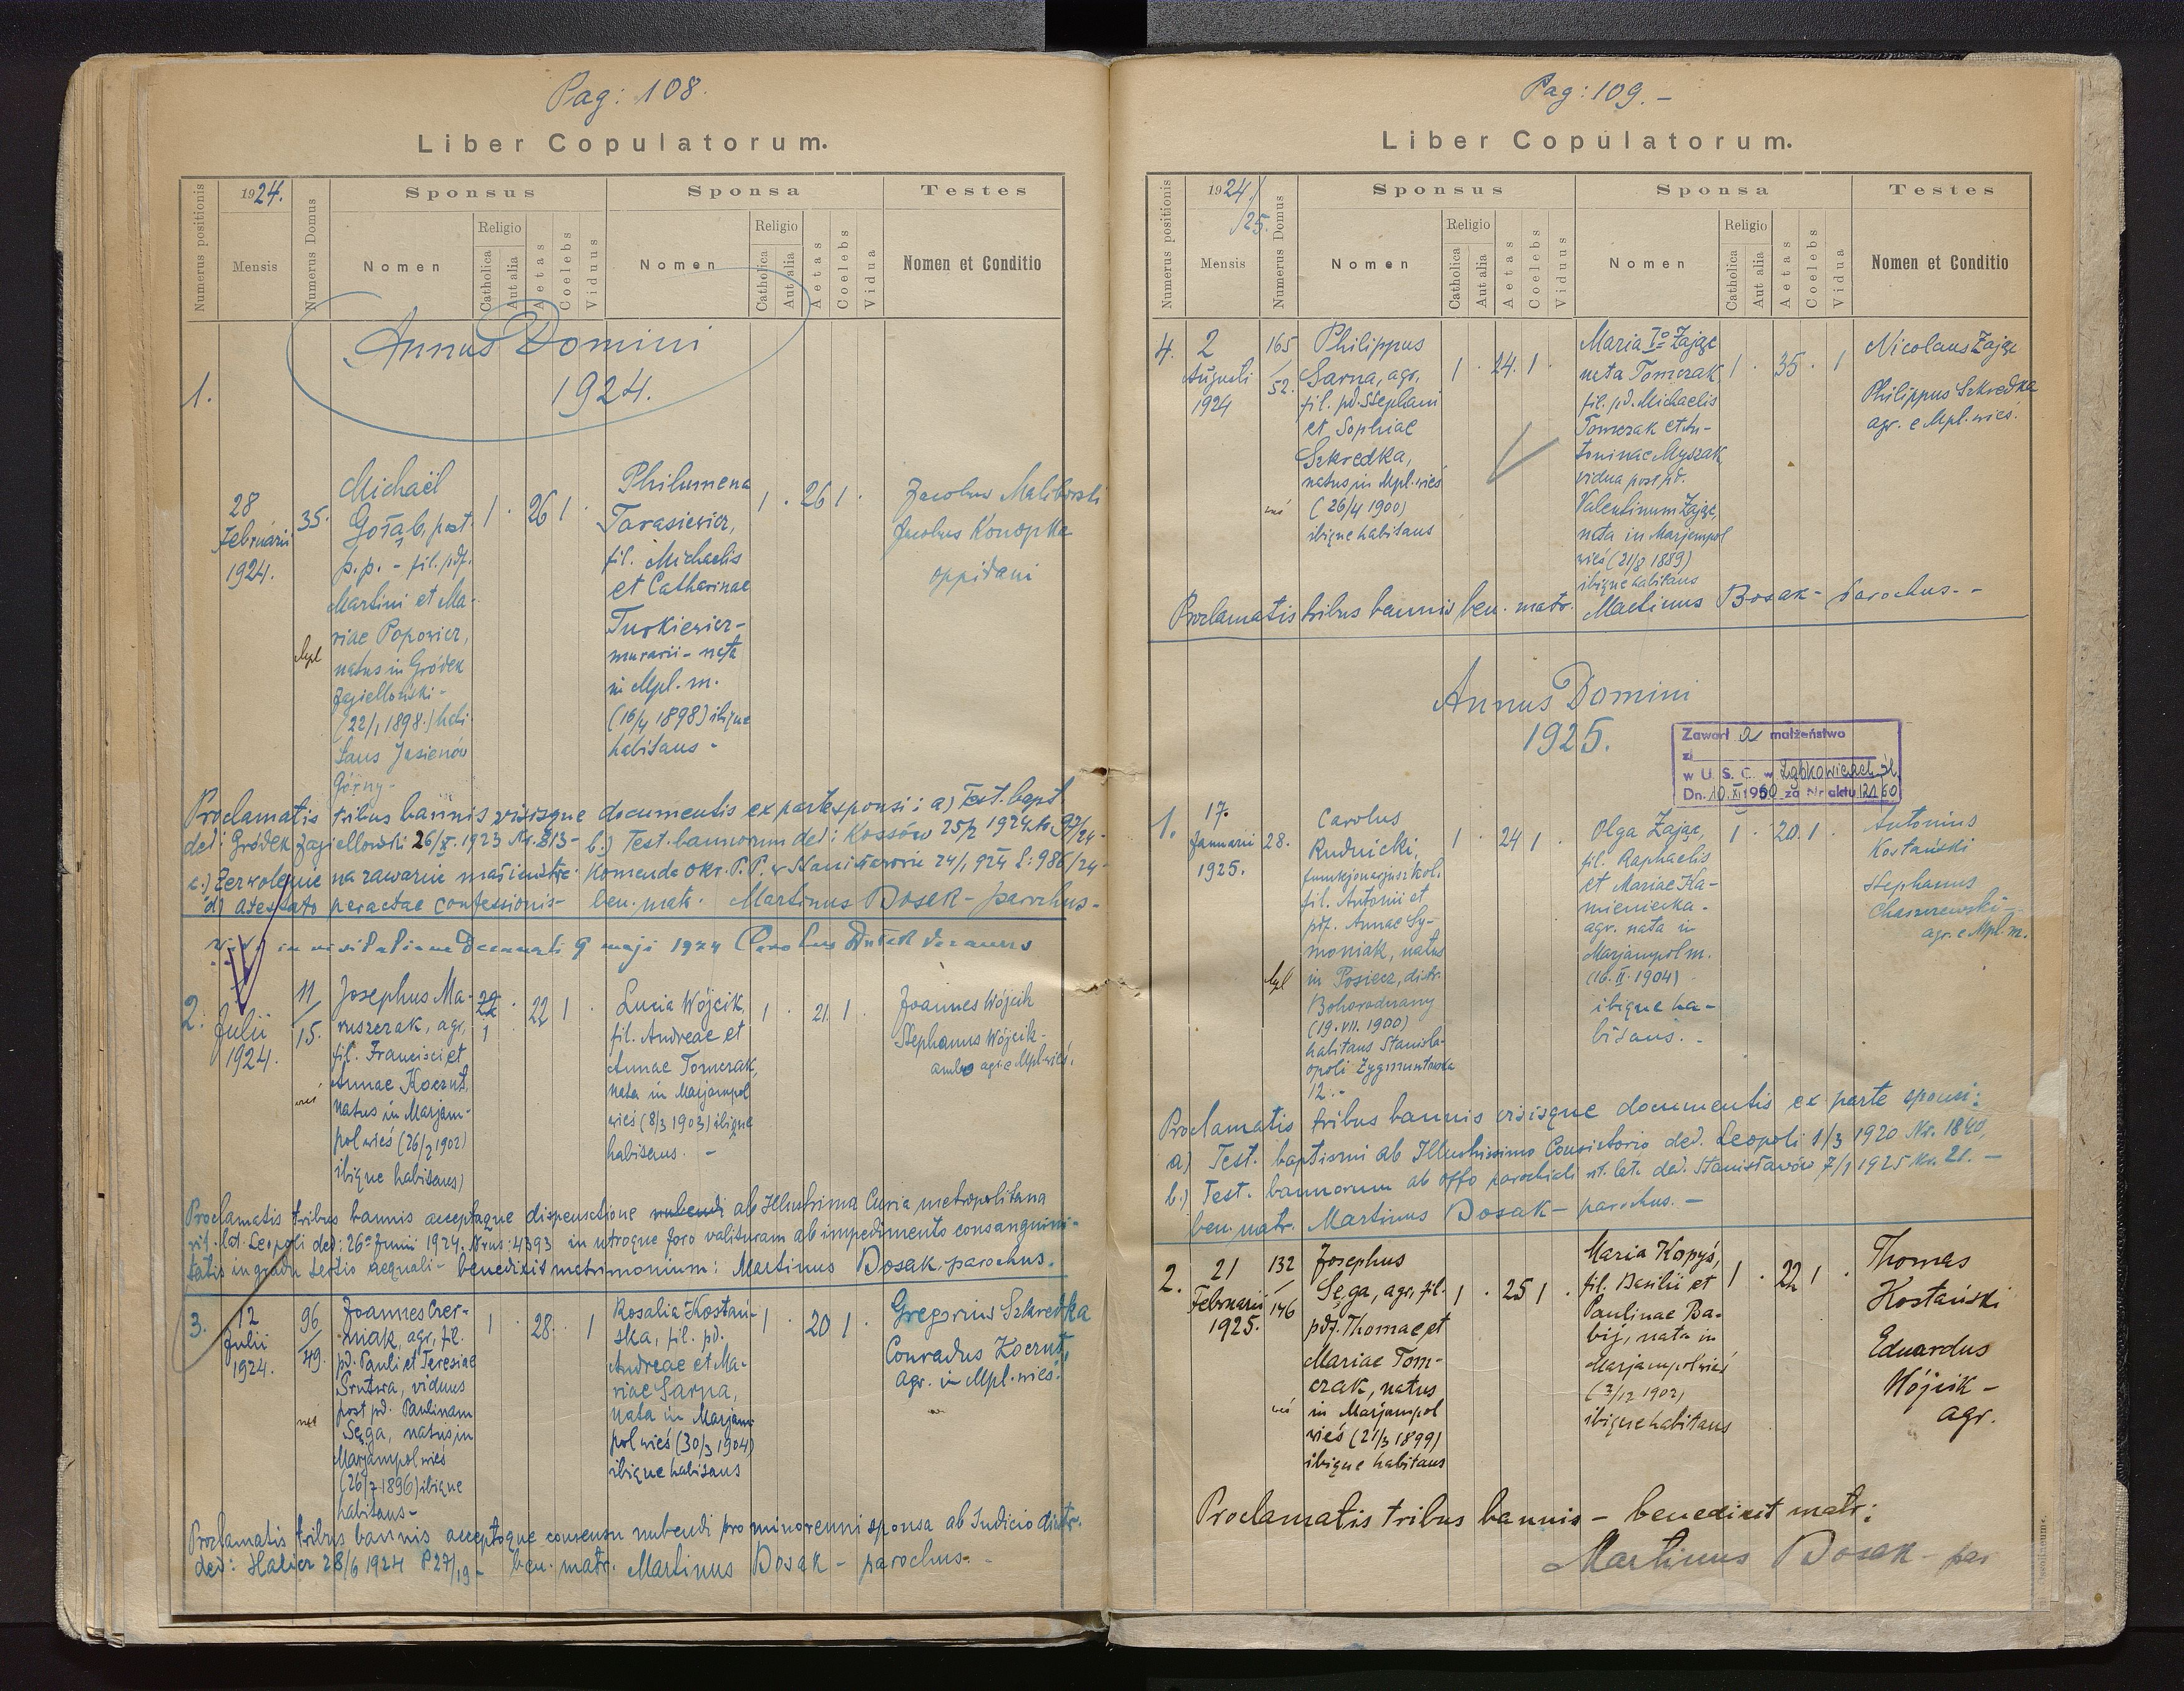 Pag: 108.
Liber Copulatorum.
Numerus positionis
1924.
Mensis
Numerus Domus
Sponsus
Nomen
Religio
Catholica
Aut alia
Aetas
Coelebs
Viduus
Sponsa
Nomen
Religio
Catholica
Aut alia
Aetas
Coelebs
Vidua
Testes
Nomen et Conditio
Annus Domini
1924.
1.
28
Februarii
1924.
35.
Mpl
Michaël
Gołąb, post.
p.p. - fil. pdf.
Martini et Ma-
riae Popowicz,
natus in Gródek
Jagielloński -
(22/1 1898.) habi-
tans Jasienów
Górny -
1 . 26 1 .
Philumena
Tarasiewicz,
fil. Michaelis
et Catharinae
Turkiewicz -
murarii - nata
in Mpl. m.
(16/4 1898) ibique
habitans -
1 . 26 1 .
Jacobus
Jacobus Konopka
oppidani
Proclamatis tribus bannis visisque documentis ex parte sponsi: a) Test. bapt.
ded: Gródek Jagielloński 26/X. 1923 Nr. 813 - b.) Test. bannorum ded: Kossów 25/2 1924
c.) Zezwolenie na zawarcie małżeństwa: Komenda Okr. P.P. w Stanisławowie 24/1 924 L: 986/24 -
d) atestato peractae confessionis - ben. matr. Martinus Bosak - parochus -
in visitatione Decanali 9 maji 1924
2.
11
Julii
1924.
15.
wieś
Josephus Ma-
ruszczak, agr,
fil. Francisci et
Annae Koczut,
natus in Marjam-
pol wieś (26/2 1902)
ibique habitans)
22
1 . 22 1 .
Lucia Wójcik,
fil. Andreae et
Annae Tomczak,
nata in Marjampol
wieś (8/3 1903) ibique
habitans. -
1 . 21. 1 .
Joannes Wójcik
Stephanus Wójcik -
ambo agr. e Mpl. wieś.
Proclamatis tribus bannis acceptaque dispensatione nubendi ab Illustrima Curia metropolitana
rit. lat. Leopoli ded: 26a Junii 1924, Nrus: 4393 in utroque foro valituram ab impedimento consanguini-
tatis in gradu tertio aequali - benedixit matrimonium: Martinus Bosak parochus.
3.
12
Julii
1924.
96
49.
Joannes Czer-
niak, agr, fil.
pd. Pauli et Teresiae
Srutwa, viduus
post pd. Paulinam
Sęga, natus in
Marjampol wieś
(26/7 1896) ibique
habitans -
1 . 28. . 1
Rosalia Kostań-
ska, fil. pd.
Andreae et Ma-
riae Sarna,
nata in Marjam-
pol wieś (30/3 1904)
ibique habitans
1 . 20 1 .
Gregorius Szkredka
Conradus Koczut,
agr. in Mpl. wieś.
Proclamatis tribus bannis acceptoque consensu nubendi pro minorenni sponsa ab Judicio distr.
ded: Halicz 28/6 1924 P 27/19 - ben. matr. Martinus Bosak - parochus -
Pag: 109. -
Liber Copulatorum.
Numerus positionis
1924/
/25.
Mensis
Numerus Domus
Sponsus
Nomen
Religio
Catholica
Aut alia
Aetas
Coelebs
Viduus
Sponsa
Nomen
Religio
Catholica
Aut alia
Aetas
Coelebs
Vidua
Testes
Nomen et Conditio
4.
2
Augusti
1924
165
52.
wieś
Philippus
Sarna, agr,
fil. pd. Stephani
et Sophiae
Szkredka,
natus in Mpl. wieś
(26/4 1900)
ibique habitans
1 . 24. 1 .
Maria Io Zając
nata Tomczak
fil. pd. Michaelis
Tomczak et An-
toninae Myszak,
vidua post pd.
Valentinum Zając,
nata in Marjampol
wieś (21/8 1889)
ibique habitans
1 . 35 . 1
Nicolaus Zając
Philippus Szkredka
agr. e Mpl. wieś.
Proclamatis tribus bannis ben. matr. Martinus Bosak - parochus. -
Annus Domini
1925.
Zawarł a małżeństwo
zł
w U. S. C. w Ząbkowicach Śl.
Dn. 10.XI 1960 za Nr aktu 121/60
1.
17.
Januarii
1925.
28.
Mpl
Carolus
Rudnicki,
funkcjonarjusz kol.
fil. Antonii et
pdf. Annae Sy-
moniak, natus
in Posiecz, distr.
Bohorodczany
(19. VII. 1900)
habitans Stanisla-
opoli Zygmuntowska
12. -
1 . 24 1 .
Olga Zając,
fil. Raphaelis
et Mariae Ka-
mieniecka -
agr. nata in
Marjampol m.
(16. II. 1904)
ibique ha-
bitans. -
1 . 20. 1 .
Antonius
Kostański
Stephanus
Charzewski -
agr. e Mpl. m.
Proclamatis tribus bannis visisque documentis ex parte sponsi:
a) Test. baptismi ab Illustrissimo Consistorio ded. Leopoli 1/3 1920 Nr. 1840,
b.) Test. bannorum ab offo parochiali rit. lat. ded. Stanisławów 7/1 1925 Nr. 21. -
ben. matr. Martinus Bosak - parochus. -
2.
21
Februarii
1925.
132
146
wieś
Josephus
Sęga, agr, fil.
pdf. Thomae et
Mariae Tom-
czak, natus
in Marjampol
wieś (21/3 1899)
ibique habitans
1 . 25 1 .
Maria Kopyś,
fil. Basilii et
Paulinae Ba-
bij, nata in
Marjampol wieś
(3/12 1902)
ibique habitans
1 . 22 1 .
Thomas
Kostański
Eduardus
Wójcik -
agr.
Proclamatis tribus bannis - benedixit matr:
Martinus Bosak - par